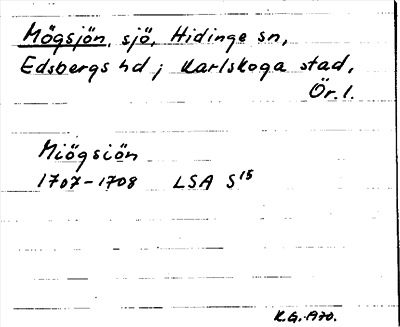 Mögsjön, sjö, Hidinge sn,
Edsbergs hd; Karlskoga stad,
Ör. l.
Miögsiön
1707-1708 LSA S15
K.G. A70.